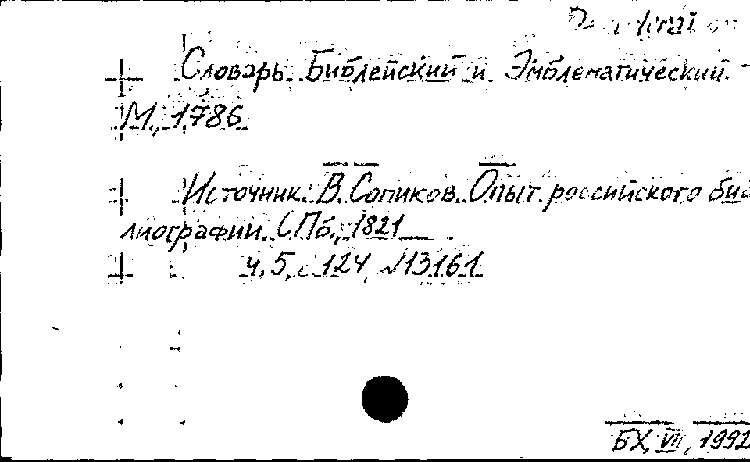 Словарь Библейский и Эмблематический.
М., 1786
Источник: В. Сопиков. Опыт российского биб
лиографии. СПб., 1821
ч. 5, с 124, №13161
БХ, VII, 1992